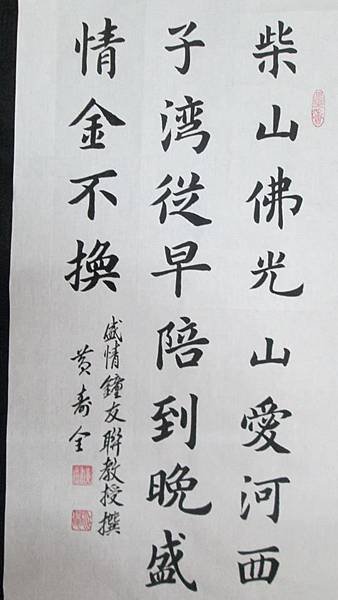 柴山佛光山愛河西
子湾從早陪到晚盛
情金不換
盛情鐘友聯教授撰
黃壽全